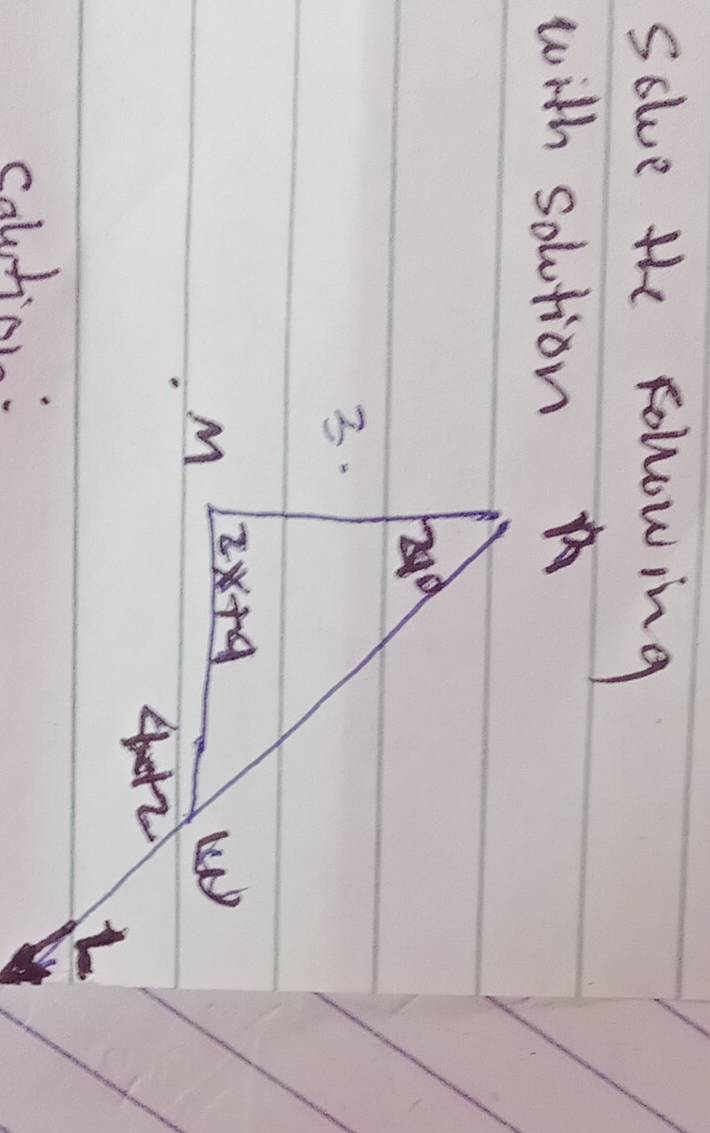 Solve the Following
with solution
3.
24°
M
2x+9
W
4x+2
L
Solution: